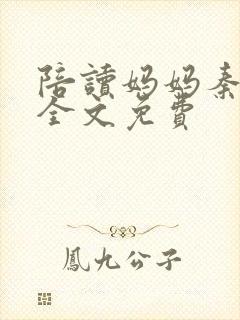 陪讀妈妈秦
全文免費
鳳九公子